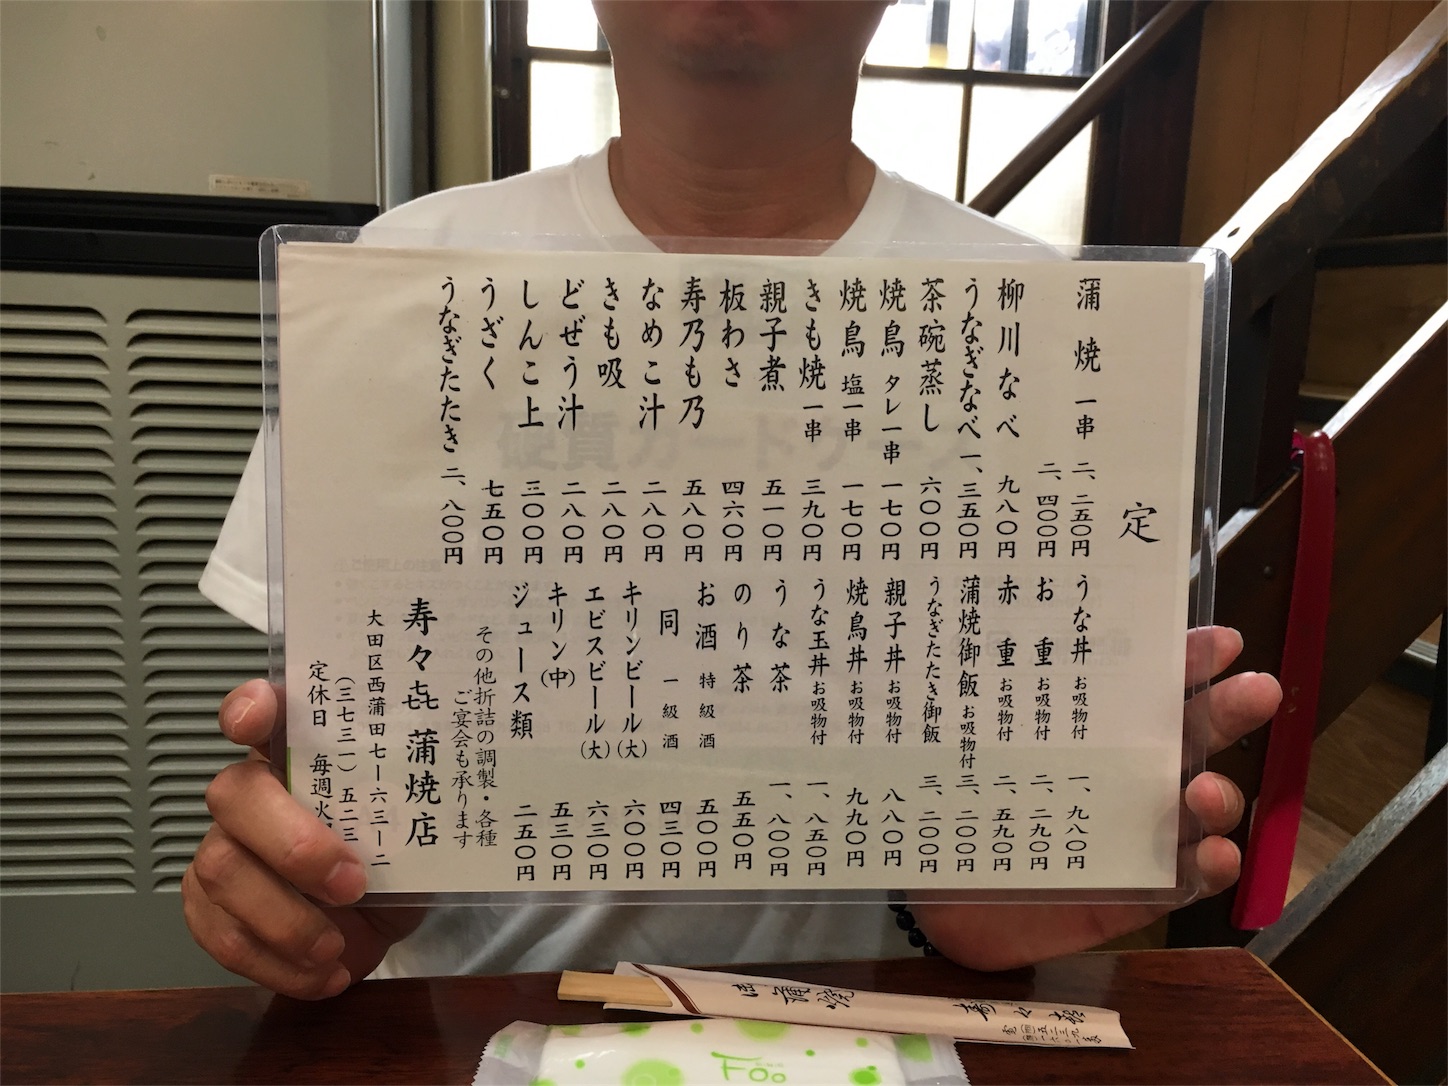 定
蒲焼 一串 二、二五〇円
二、四〇〇円
柳川なべ 九八〇円
うなぎなべ 一、三五〇円
茶碗蒸し 六〇〇円
焼鳥 タレ一串 一七〇円
焼鳥 塩一串 一七〇円
きも焼 一串 三九〇円
親子煮 五一〇円
板わさ 四六〇円
寿乃も乃 五八〇円
なめこ汁 二八〇円
きも吸 二八〇円
どぜう汁 二八〇円
しんこ上 三〇〇円
うざく 七五〇円
うなぎたたき 二、八〇〇円
うな丼 お吸物付 一、九八〇円
お重 お吸物付 二、二九〇円
赤重 お吸物付 二、五九〇円
蒲焼御飯 お吸物付 三、二〇〇円
うなぎたたき御飯 三、二〇〇円
親子丼 お吸物付 八八〇円
焼鳥丼 お吸物付 九九〇円
うな玉丼 お吸物付 一、八五〇円
うな茶 一、八〇〇円
のり茶 五五〇円
お酒 特級酒 五〇〇円
同 一級酒 四三〇円
キリンビール(大) 六〇〇円
エビスビール(大) 六三〇円
キリン(中) 五三〇円
ジュース類 二五〇円
その他折詰の調製・各種
ご宴会も承ります
寿々㐂蒲焼店
大田区西蒲田七ー六三ー二
(三七三一)五二三
定休日 毎週火
御蒲焼
寿々㐂
Foo